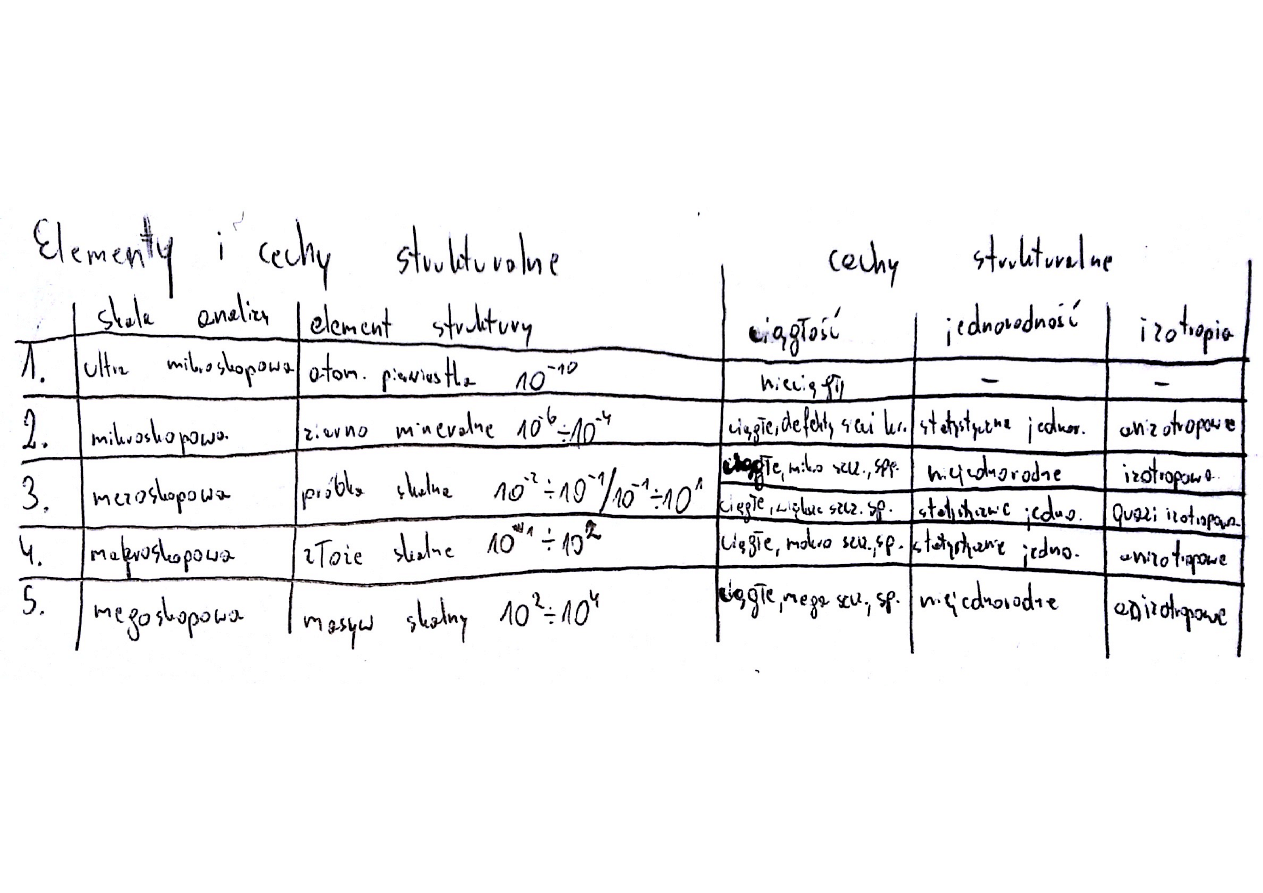 Elementy i cechy strukturalne
cechy strukturalne
skala analizy element struktury ciągłość jednorodność izotropia
1. ultra mikroskopowa atom. pierwiastka 10⁻¹⁰ nieciągły – –
2. mikroskopowa ziarno mineralne 10⁻⁶÷10⁻⁴ ciągłe, defekty sieci kr. statystyczna jednor. anizotropowe
3. mezoskopowa próbka skalna 10⁻²÷10⁻¹/10⁻¹÷10¹ ciągłe, mikro szcz., sp. niejednorodne izotropowa
ciągłe, większe szcz. sp. statystyczne jedno. quazi izotropowa
4. makroskopowa złoże skalne 10¹÷10² ciągłe, makro szcz., sp. statystycznie jedno. anizotropowe
5. megaskopowa masyw skalny 10²÷10⁴ ciągłe, mega szcz., sp. niejednorodne anizotropowe